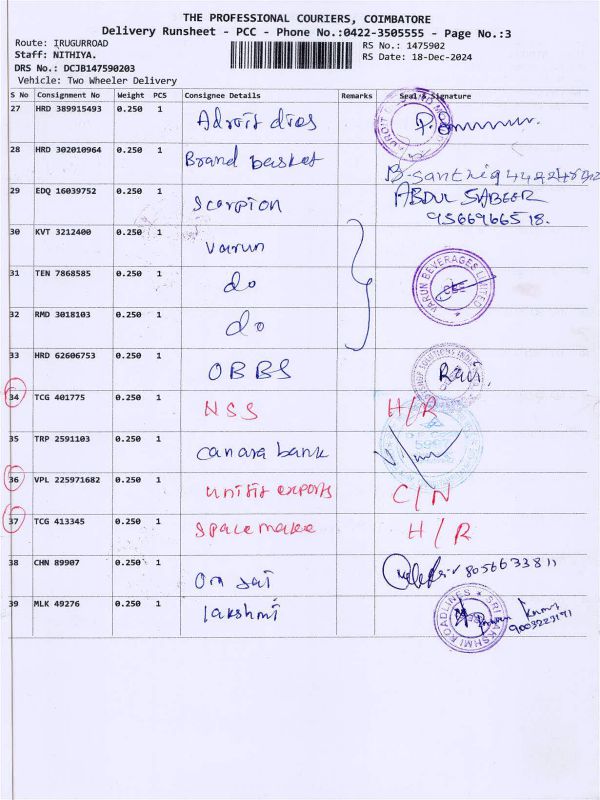 THE PROFESSIONAL COURIERS, COIMBATORE
Delivery Runsheet - PCC - Phone No.:0422-3505555 - Page No.:3
Route: IRUGURROAD
RS No.: 1475902
Staff: NITHIYA.
RS Date: 18-Dec-2024
DRS No.: DCJB147590203
Vehicle: Two Wheeler Delivery
S No Consignment No Weight PCS Consignee Details Remarks Seal & Signature
27 HRD 389915493 0.250 1 Adroit dies
28 HRD 302010964 0.250 1 Brand basket
29 EDQ 16039752 0.250 1 Scorpion ABDUL SABEER
9566966518.
30 KVT 3212400 0.250 1 Varun
31 TEN 7868585 0.250 1 do VARUN BEVERAGES LIMITED
32 RMD 3018103 0.250 1 do
33 HRD 62606753 0.250 1 OBBS Ravi.
34 TCG 401775 0.250 1 NSS H/R
35 TRP 2591103 0.250 1 canara bank
36 VPL 225971682 0.250 1 exports C/N
37 TCG 413345 0.250 1 H/R
38 CHN 89907 0.250 1 Om sai 8056633811
39 MLK 49276 0.250 1 lakshmi SRI LAKSHMI ROADLINES